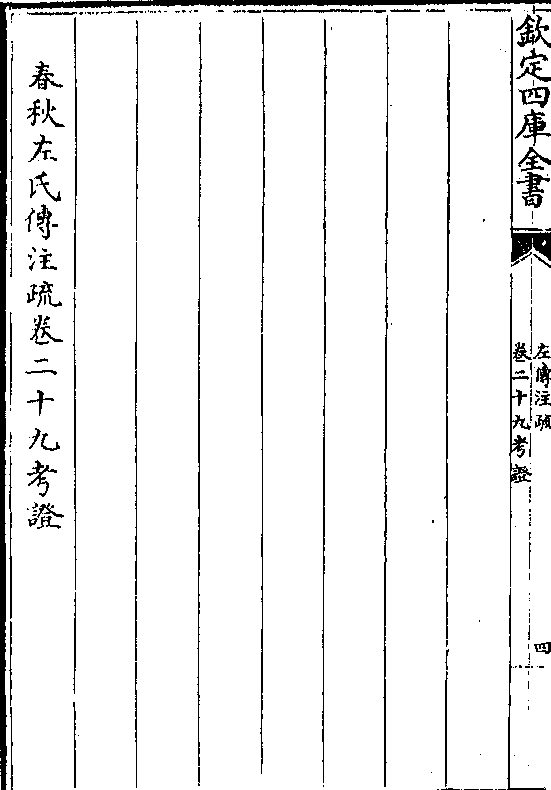 欽定四庫全書
左傳注疏
卷二十九考證
四
春秋左氏傳注疏卷二十九考證